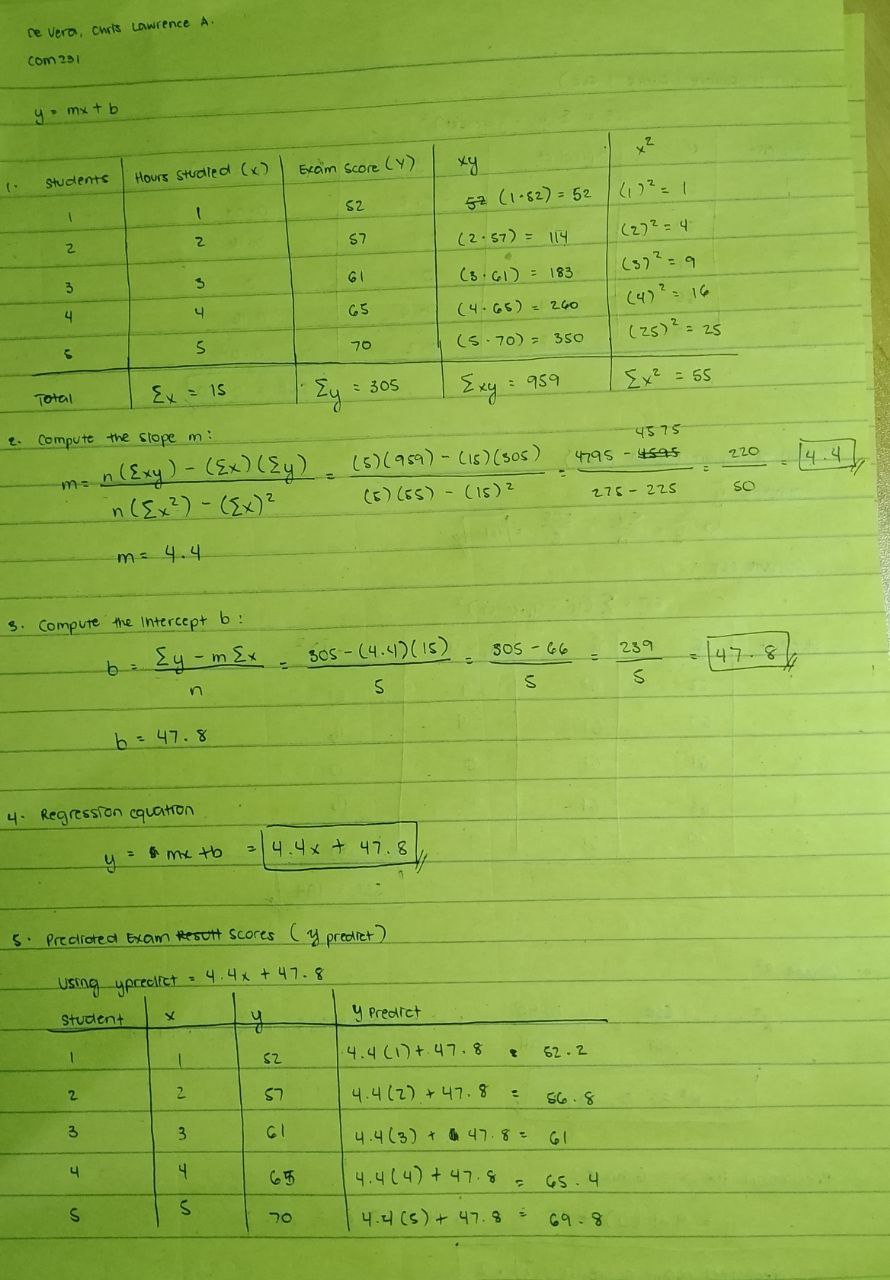 De Vera, Chris Lawrence A.
COM231
y = mx + b
1. Students Hours studied (x) Exam score (Y) xy x²
1 1 52 52 (1·52) = 52 (1)² = 1
2 2 57 (2·57) = 114 (2)² = 4
3 3 61 (3·61) = 183 (3)² = 9
4 4 65 (4·65) = 260 (4)² = 16
5 5 70 (5·70) = 350 (25)² = 25
Total Σx = 15 Σy = 305 Σxy = 959 Σx² = 55
2. Compute the slope m:
m = n(Σxy) - (Σx)(Σy) / n(Σx²) - (Σx)² = (5)(959) - (15)(305) / (5)(55) - (15)² = 4795 - 4595 4575 / 275 - 225 = 220 / 50 = 4.4
m = 4.4
3. Compute the Intercept b:
b = Σy - mΣx / n = 305 - (4.4)(15) / 5 = 305 - 66 / 5 = 239 / 5 = 47.8
b = 47.8
4. Regression equation
y = mx + b = 4.4x + 47.8
5. Predicted Exam Result scores (y predict)
Using ypredict = 4.4x + 47.8
Student x y y Predict
1 1 52 4.4(1) + 47.8 = 52.2
2 2 57 4.4(2) + 47.8 = 56.8
3 3 61 4.4(3) + 47.8 = 61
4 4 65 4.4(4) + 47.8 = 65.4
5 5 70 4.4(5) + 47.8 = 69.8